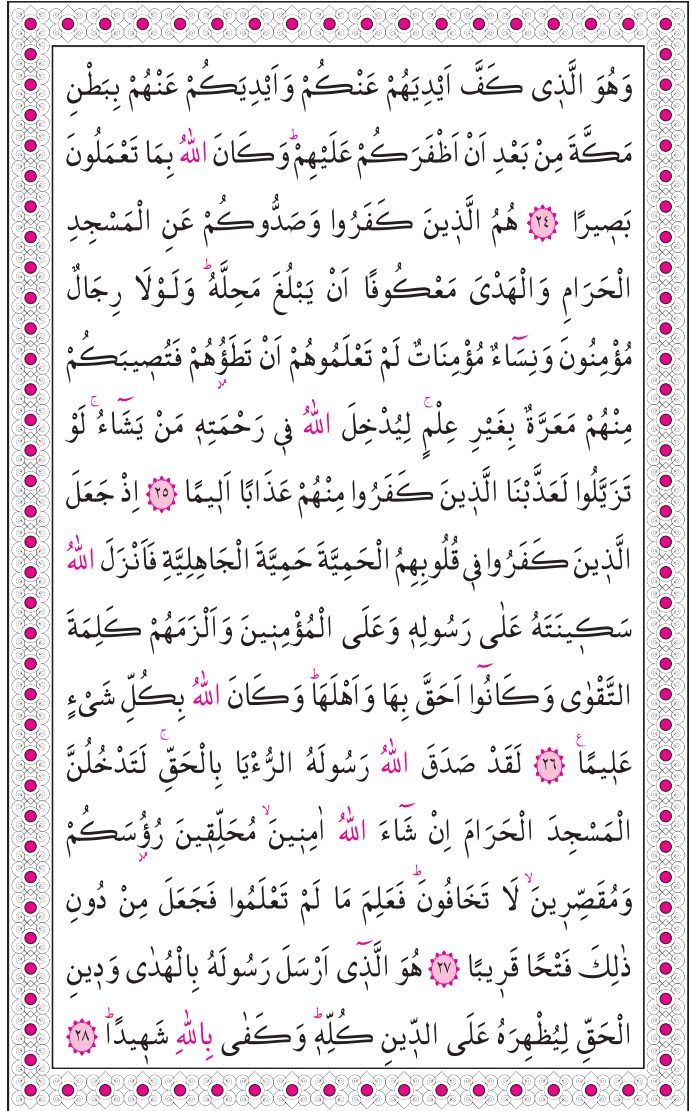 وَهُوَ الَّذ۪ى كَفَّ اَيْدِيَهُمْ عَنْكُمْ وَاَيْدِيَكُمْ عَنْهُمْ بِبَطْنِ
مَكَّةَ مِنْ بَعْدِ اَنْ اَظْفَرَكُمْ عَلَيْهِمْۜ وَكَانَ اللّٰهُ بِمَا تَعْمَلُونَ
بَص۪يرًا ﴿٢٤﴾ هُمُ الَّذ۪ينَ كَفَرُوا وَصَدُّوكُمْ عَنِ الْمَسْجِدِ
الْحَرَامِ وَالْهَدْىَ مَعْكُوفًا اَنْ يَبْلُغَ مَحِلَّهُۜ وَلَوْلَا رِجَالٌ
مُؤْمِنُونَ وَنِسَٓاءٌ مُؤْمِنَاتٌ لَمْ تَعْلَمُوهُمْ اَنْ تَطَؤُ۫هُمْ فَتُص۪يبَكُمْ
مِنْهُمْ مَعَرَّةٌ بِغَيْرِ عِلْمٍۚ لِيُدْخِلَ اللّٰهُ ف۪ى رَحْمَتِه۪ مَنْ يَشَٓاءُۚ لَوْ
تَزَيَّلُوا لَعَذَّبْنَا الَّذ۪ينَ كَفَرُوا مِنْهُمْ عَذَابًا اَل۪يمًا ﴿٢٥﴾ اِذْ جَعَلَ
الَّذ۪ينَ كَفَرُوا ف۪ى قُلُوبِهِمُ الْحَمِيَّةَ حَمِيَّةَ الْجَاهِلِيَّةِ فَاَنْزَلَ اللّٰهُ
سَك۪ينَتَهُ عَلٰى رَسُولِه۪ وَعَلَى الْمُؤْمِن۪ينَ وَاَلْزَمَهُمْ كَلِمَةَ
التَّقْوٰى وَكَانُٓوا اَحَقَّ بِهَا وَاَهْلَهَاۜ وَكَانَ اللّٰهُ بِكُلِّ شَىْءٍ
عَل۪يمًا۟ ﴿٢٦﴾ لَقَدْ صَدَقَ اللّٰهُ رَسُولَهُ الرُّءْيَا بِالْحَقِّۚ لَتَدْخُلُنَّ
الْمَسْجِدَ الْحَرَامَ اِنْ شَٓاءَ اللّٰهُ اٰمِن۪ينَۙ مُحَلِّق۪ينَ رُؤُ۫سَكُمْ
وَمُقَصِّر۪ينَۙ لَا تَخَافُونَۜ فَعَلِمَ مَا لَمْ تَعْلَمُوا فَجَعَلَ مِنْ دُونِ
ذٰلِكَ فَتْحًا قَر۪يبًا ﴿٢٧﴾ هُوَ الَّذ۪ٓى اَرْسَلَ رَسُولَهُ بِالْهُدٰى وَد۪ينِ
الْحَقِّ لِيُظْهِرَهُ عَلَى الدّ۪ينِ كُلِّه۪ۜ وَكَفٰى بِاللّٰهِ شَه۪يدًاۜ ﴿٢٨﴾